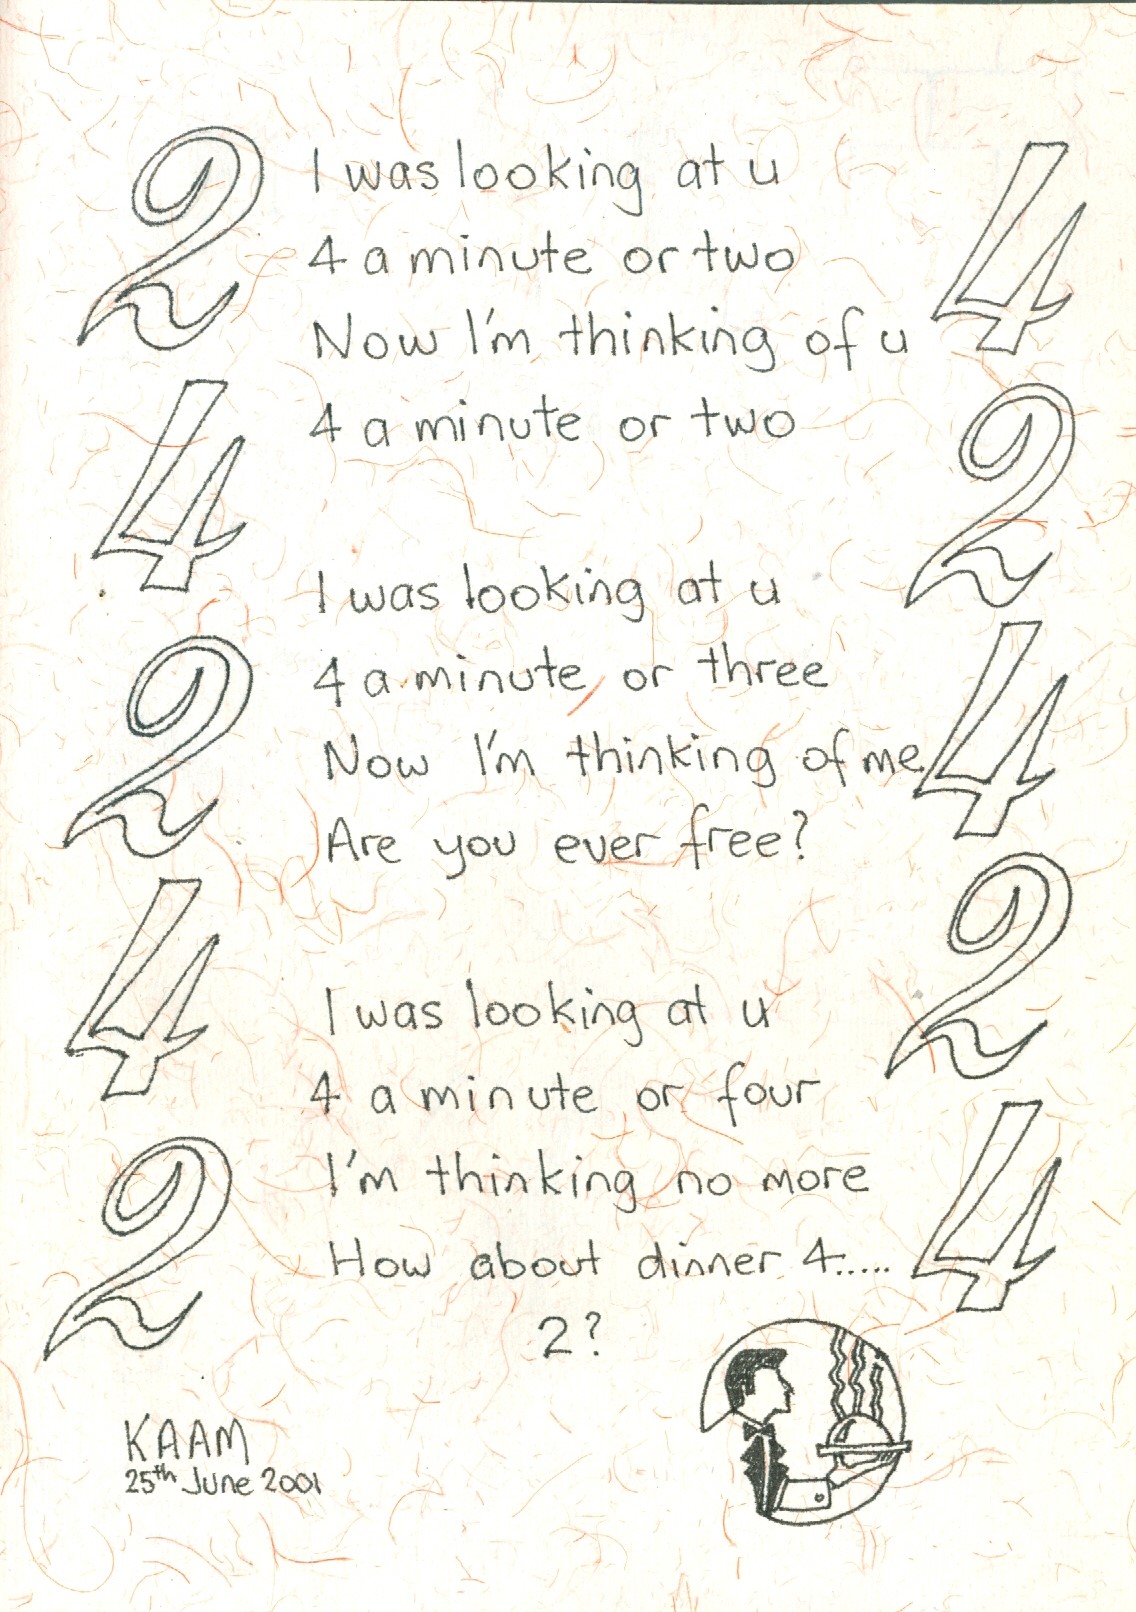 2 I was looking at u 4
4 a minute or two
Now I'm thinking of u
4 4 a minute or two 2
I was looking at u
2 4 a minute or three 4
Now I'm thinking of me
Are you ever free?
4 I was looking at u 2
4 a minute or four
2 I'm thinking no more 4
How about dinner 4.....
2?
KAAM
25th June 2001